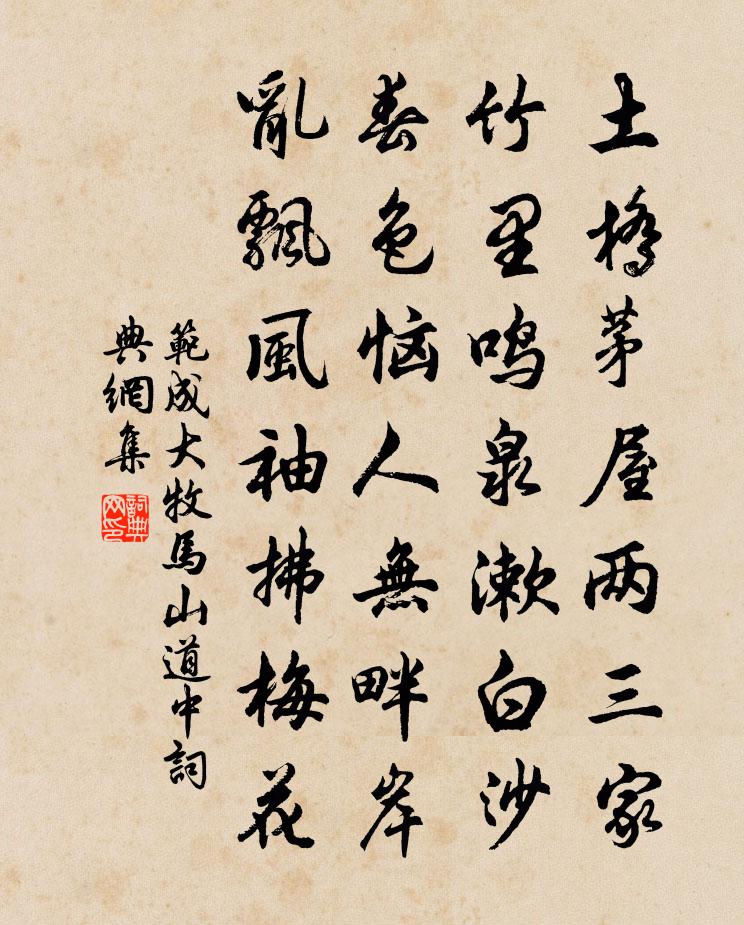 土橋茅屋两三家
竹里鸣泉漱白沙
春色恼人無畔岸
亂飄風袖拂梅花
範成大牧馬山道中詞
典網集
詞典
网印